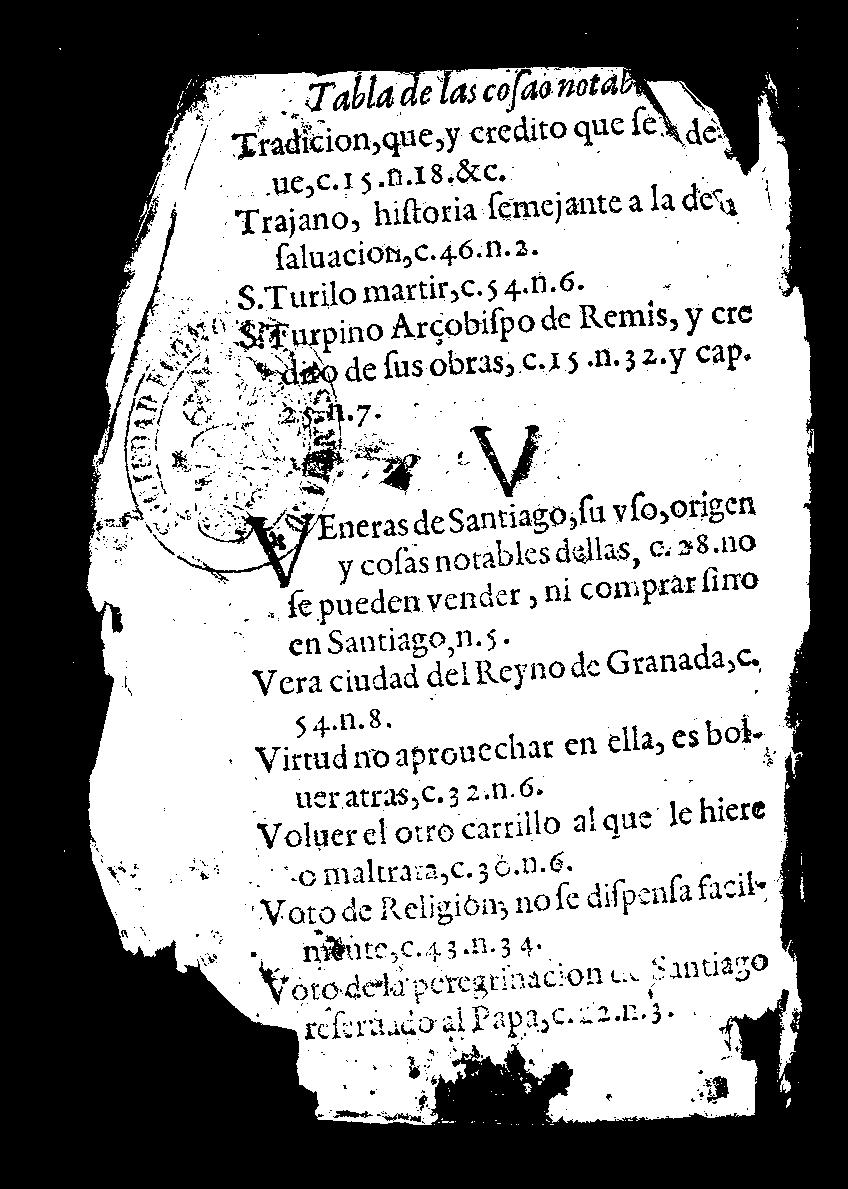 Tabla de las coſao notab
Tradicion,que,y credito que ſe de
ue,c.15.n.18.&c.
Trajano, hiſtoria ſemejante a la de ſu
ſaluacion,c.46.n.2.
S.Turilo martir,c.54.n.6.
S.Turpino Arçobiſpo de Remis, y cre
dito de ſus obras, c.15.n.32.y cap.
25.n.7.
V
VEneras de Santiago,ſu vſo,origen
y coſas notables dellas, c.28.no
ſe pueden vender, ni comprar ſino
en Santiago,n.5.
Vera ciudad del Reyno de Granada,c.
54.n.8.
Virtud no aprouechar en ella, es bol-
uer atras,c.32.n.6.
Voluer el otro carrillo al que le hiere
o maltrata,c.30.n.6.
Voto de Religión, no ſe diſpenſa facil-
mente,c.43.n.34.
Voto de la peregrinacion de Santiago
reſeruado al Papa,c.22.n.3.
SOCIEDAD